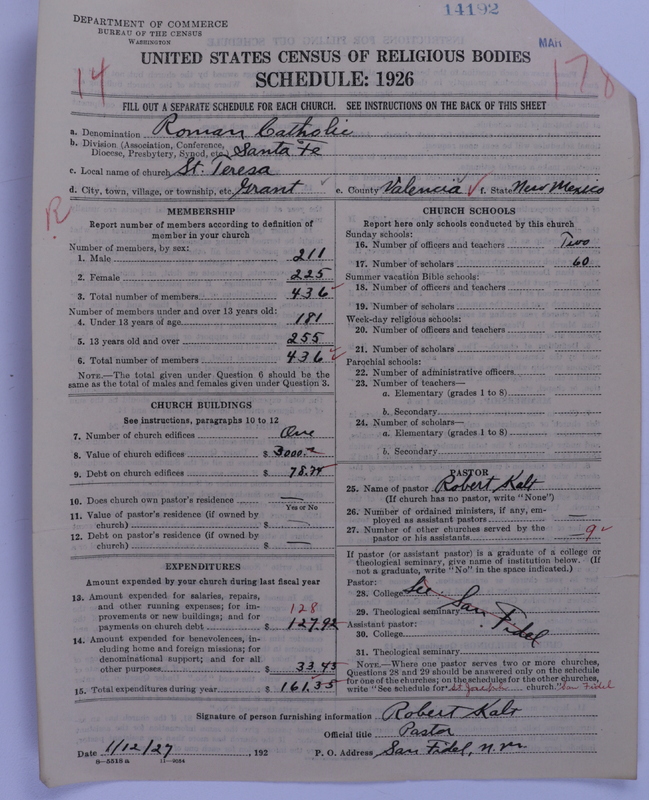 14192
DEPARTMENT OF COMMERCE
BUREAU OF THE CENSUS
WASHINGTON
MAR
UNITED STATES CENSUS OF RELIGIOUS BODIES
SCHEDULE: 1926
14
178
FILL OUT A SEPARATE SCHEDULE FOR EACH CHURCH. SEE INSTRUCTIONS ON THE BACK OF THIS SHEET
a. Denomination Roman Catholic
b. Division (Association, Conference,
Diocese, Presbytery, Synod, etc.) Santa Fe
c. Local name of church St. Teresa
d. City, town, village, or township, etc. Grant ✓ e. County Valencia ✓ f. State New Mexico
R
MEMBERSHIP
Report number of members according to definition of
member in your church
Number of members, by sex:
1. Male 211
2. Female 225
3. Total number of members 436 ✓
Number of members under and over 13 years old:
4. Under 13 years of age 181
5. 13 years old and over 255
6. Total number of members 436 ✓
NOTE.—The total given under Question 6 should be the
same as the total of males and females given under Question 3.
CHURCH BUILDINGS
See instructions, paragraphs 10 to 12
7. Number of church edifices One
8. Value of church edifices $ 3000.
9. Debt on church edifices $ 78.74
10. Does church own pastor's residence —
Yes or No
11. Value of pastor's residence (if owned by
church) $ —
12. Debt on pastor's residence (if owned by
church) $ —
EXPENDITURES
Amount expended by your church during last fiscal year
13. Amount expended for salaries, repairs,
and other running expenses; for im-
provements or new buildings; and for 128
payments on church debt $ 127.92
14. Amount expended for benevolences, in-
cluding home and foreign missions; for
denominational support; and for all
other purposes $ 33.43
15. Total expenditures during year $ 161.35
CHURCH SCHOOLS
Report here only schools conducted by this church
Sunday schools:
16. Number of officers and teachers Two
17. Number of scholars 60
Summer vacation Bible schools:
18. Number of officers and teachers
19. Number of scholars
Week-day religious schools:
20. Number of officers and teachers
21. Number of scholars
Parochial schools:
22. Number of administrative officers
23. Number of teachers—
a. Elementary (grades 1 to 8)
b. Secondary
24. Number of scholars—
a. Elementary (grades 1 to 8)
b. Secondary
PASTOR
25. Name of pastor Robert Kalt
(If church has no pastor, write "None")
26. Number of ordained ministers, if any, em-
ployed as assistant pastors —
27. Number of other churches served by the
pastor or his assistants 9 ✓
If pastor (or assistant pastor) is a graduate of a college or
theological seminary, give name of institution below. (If
not a graduate, write "No" in the space indicated.)
Pastor:
28. College See
29. Theological seminary San Fidel
Assistant pastor:
30. College
31. Theological seminary
NOTE.—Where one pastor serves two or more churches,
Questions 28 and 29 should be answered only on the schedule
for one of the churches; on the schedules for the other churches,
write "See schedule for St Joseph church." San Fidel
Signature of person furnishing information Robert Kalt
Official title Pastor
Date 1/12/27, 192 P. O. Address San Fidel, N. M.
8—5518 a 11—9034